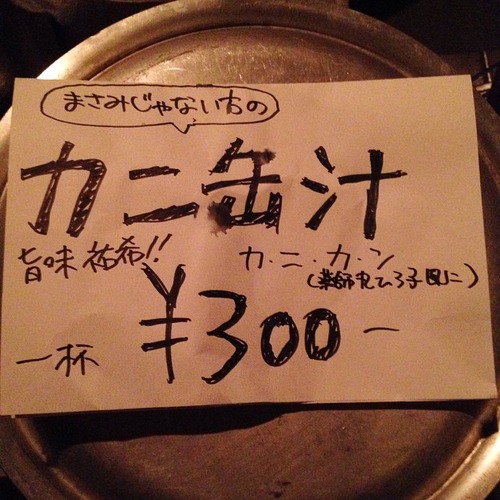 まさみじゃない方の
カニ缶汁
旨味 祐希!!
カ・ニ・カ・ン
(薬師丸ひろ子風に)
一杯 ¥300ー